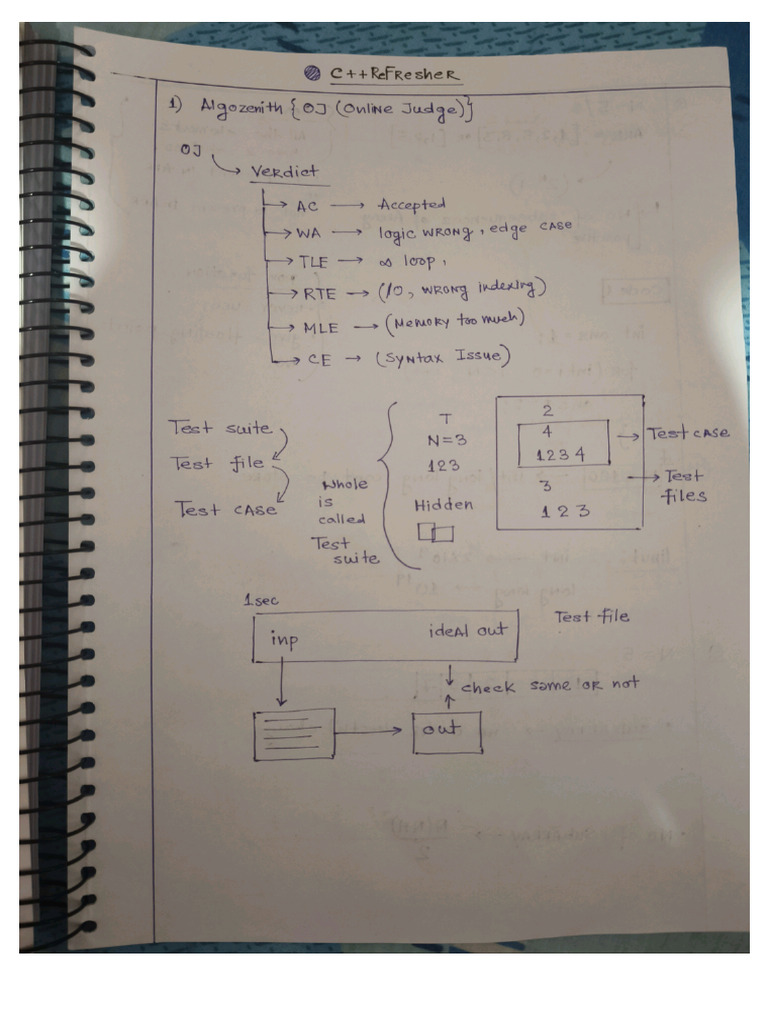 C++ Refresher
1) Algozenith {OJ (Online Judge)}
OJ
Verdict
AC → Accepted
WA → logic wrong, edge case
TLE → ∞ loop,
RTE → (/0, wrong indexing)
MLE → (Memory too much)
CE → (Syntax Issue)
Test suite
Test file
Test case
Whole
is
called
Test
suite
T
N=3
123
Hidden
2
4
1234
3
1 2 3
→ Test case
→ Test
files
1sec
inp
ideal out
Test file
check same or not
out